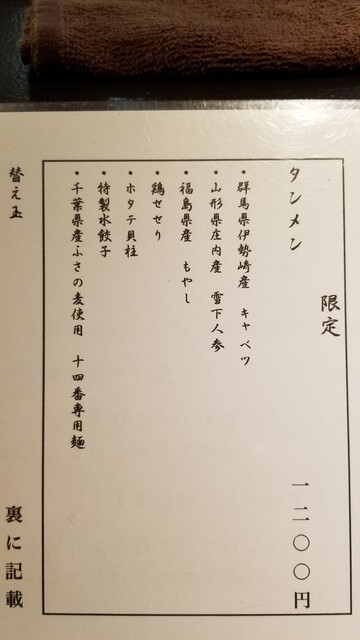 限定
タンメン 一二〇〇円
・群馬県伊勢崎産 キャベツ
・山形県庄内産 雪下人参
・福島県産 もやし
・鶏せせり
・ホタテ貝柱
・特製水餃子
・千葉県産ふさの麦使用 十四番専用麺
替え玉 裏に記載